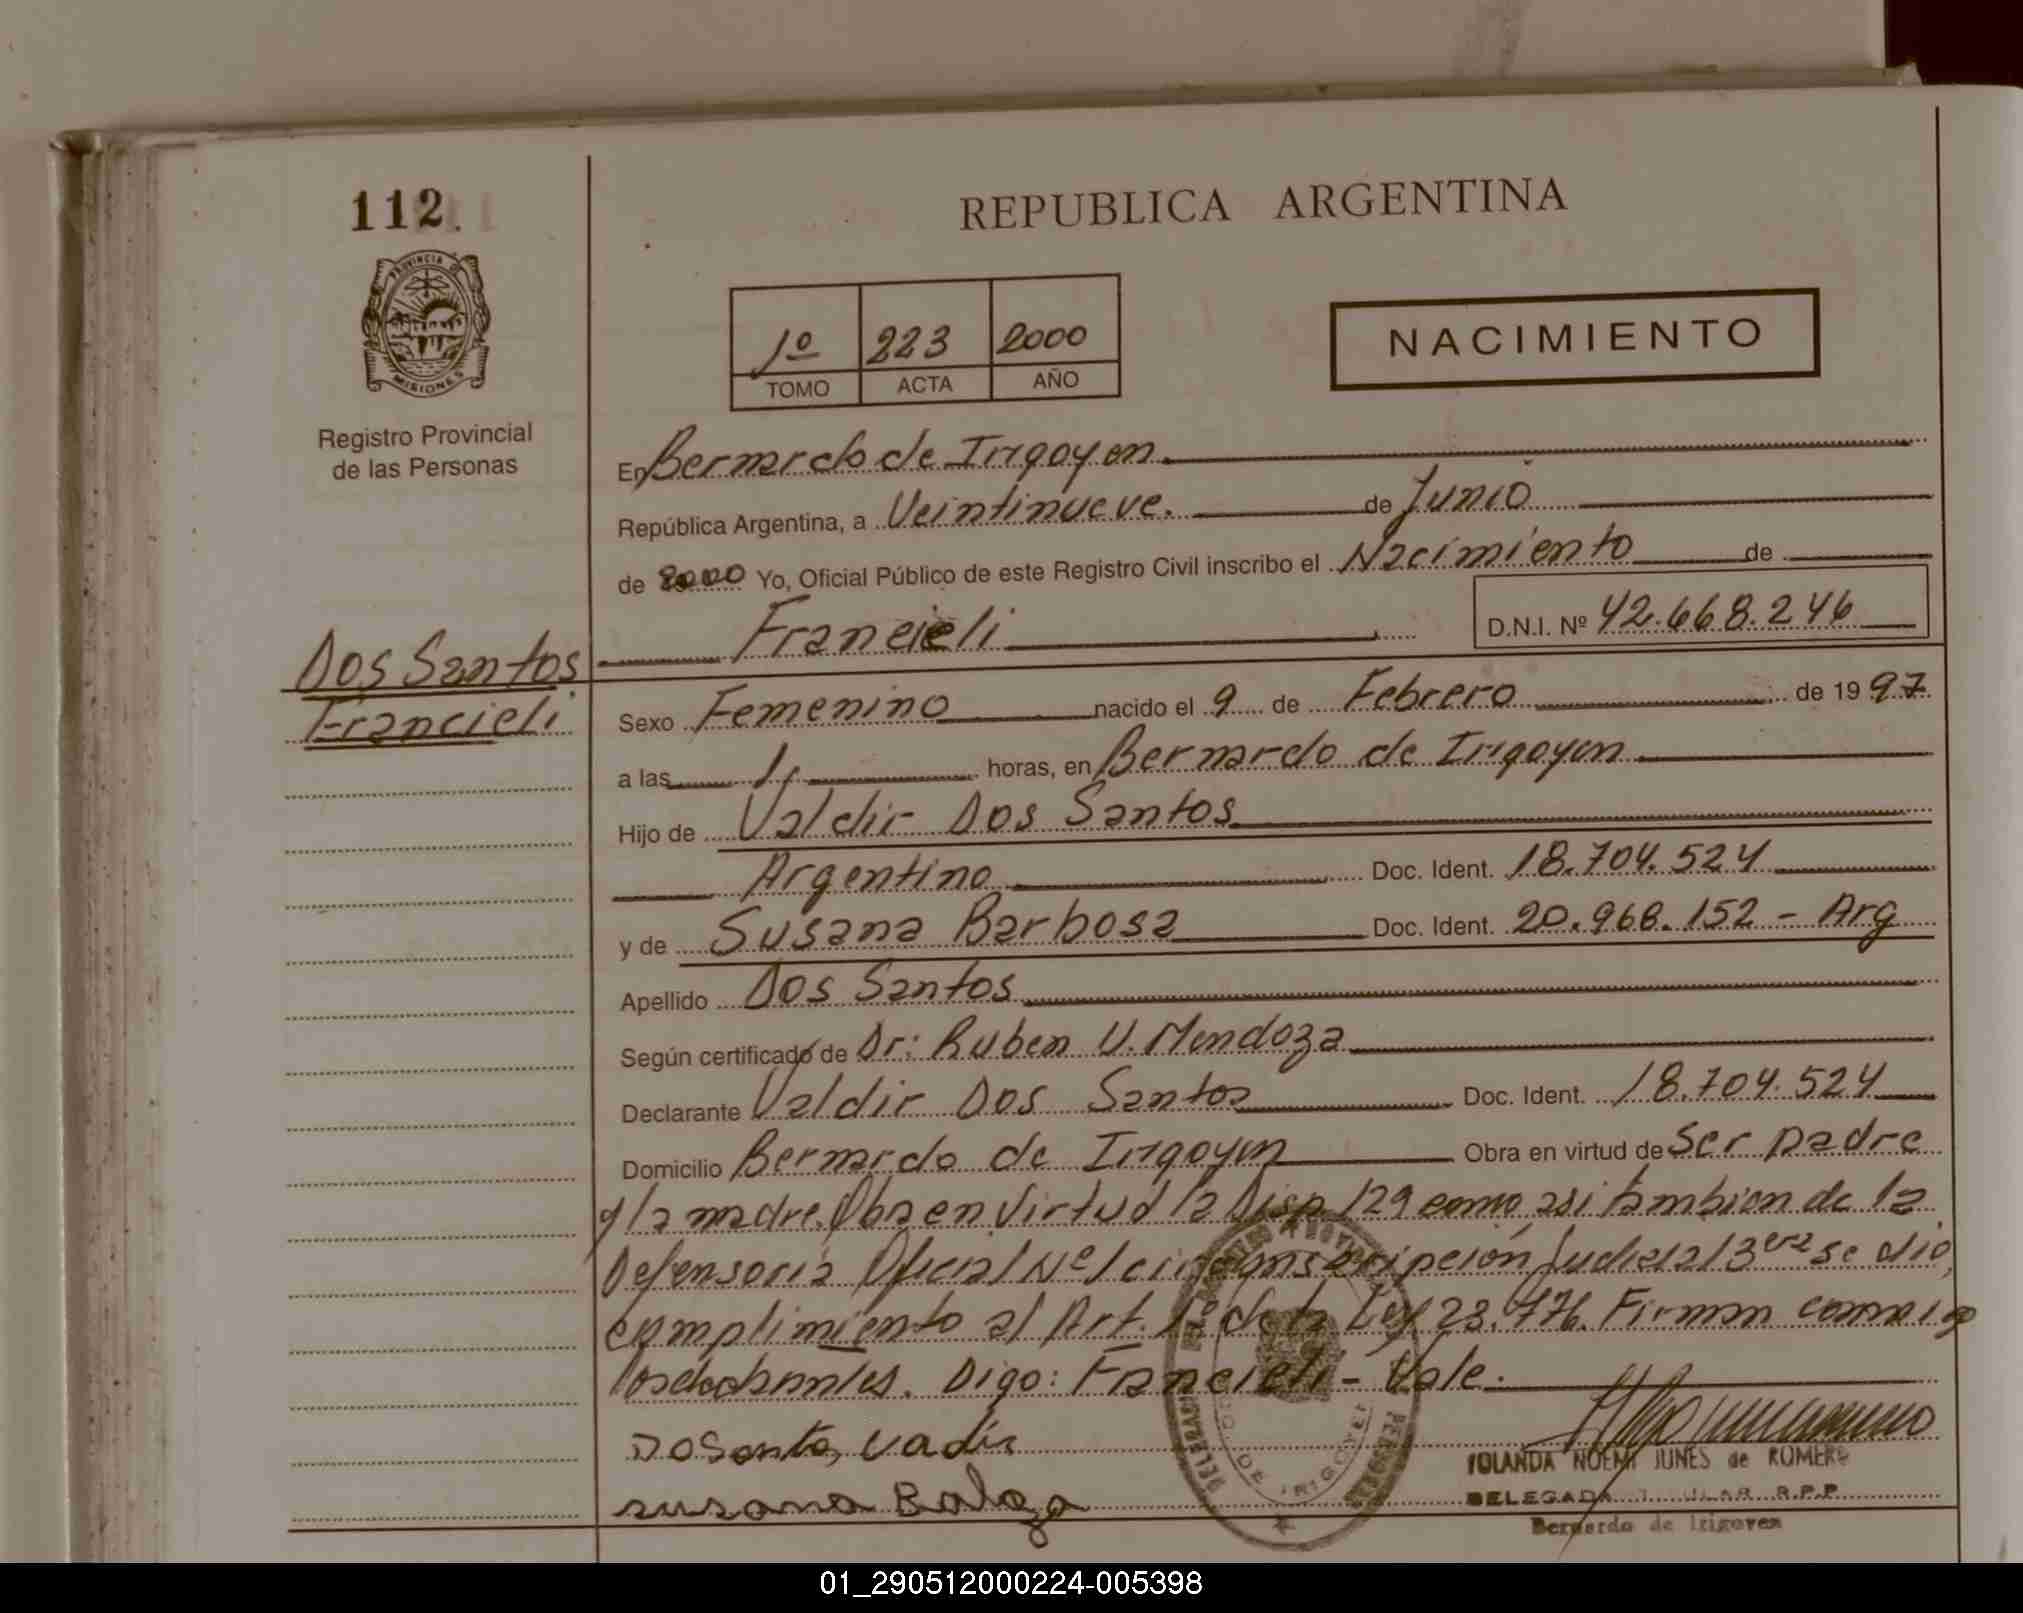 112.
REPUBLICA ARGENTINA
PROVINCIA DE
MISIONES
1º 223 2000
TOMO ACTA AÑO
NACIMIENTO
Registro Provincial
de las Personas
En Bernardo de Irigoyen.
República Argentina, a Veintinueve. de Junio
de 2000 Yo, Oficial Público de este Registro Civil inscribo el Nacimiento de
Francieli D.N.I. Nº 42.668.246
Dos Santos
Francieli
Sexo Femenino nacido el 9 de Febrero de 1997
a las 1, horas, en Bernardo de Irigoyen
Hijo de Valdir Dos Santos
Argentino Doc. Ident. 18.704.524
y de Susana Barbosa Doc. Ident. 20.968.152 - Arg
Apellido Dos Santos
Según certificado de Dr: Ruben V. Mendoza
Declarante Valdir Dos Santos Doc. Ident. 18.704.524
Domicilio Bernardo de Irigoyen Obra en virtud de ser padre
y la madre. Obra en virtud la Disp. 129 como asi tambien de la
Defensoria Oficial Nº 1 circunscripción Judicial 3era se dio
cumplimiento al Art. 1º de la Ley 23.776. Firman conmigo
los declarantes. Digo: Francieli - Vale.
DoSanto, Vadir
susana
IOLANDA NOEMI JUNES de ROMERO
DELEGADA TITULAR R.P.P.
Bernardo de Irigoyen
01_290512000224-005398